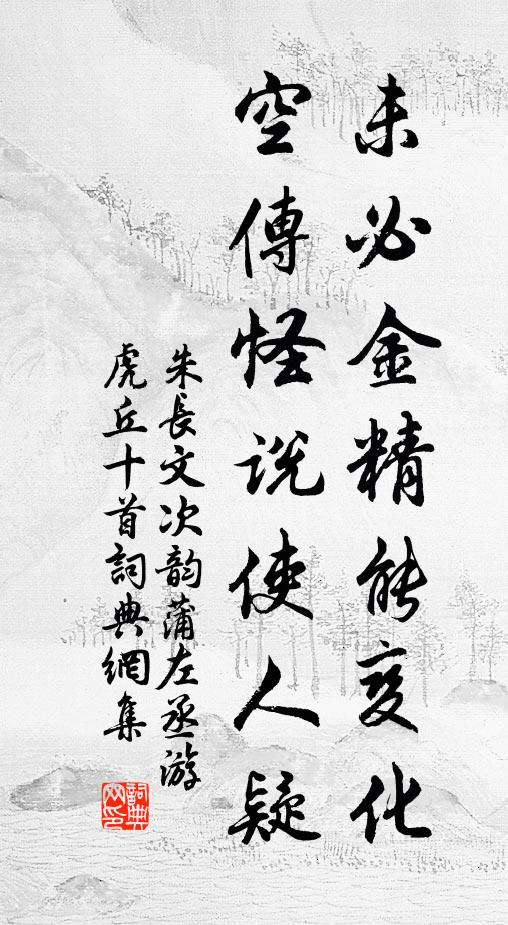 未必金精能变化
空傳怪说使人疑
朱長文次韵蒲左丞游
虎丘十首詞典網集
詞典
网印